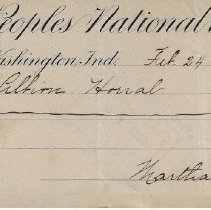 Peoples National
Washington, Ind. Feb. 24
Albion Horral
Martha